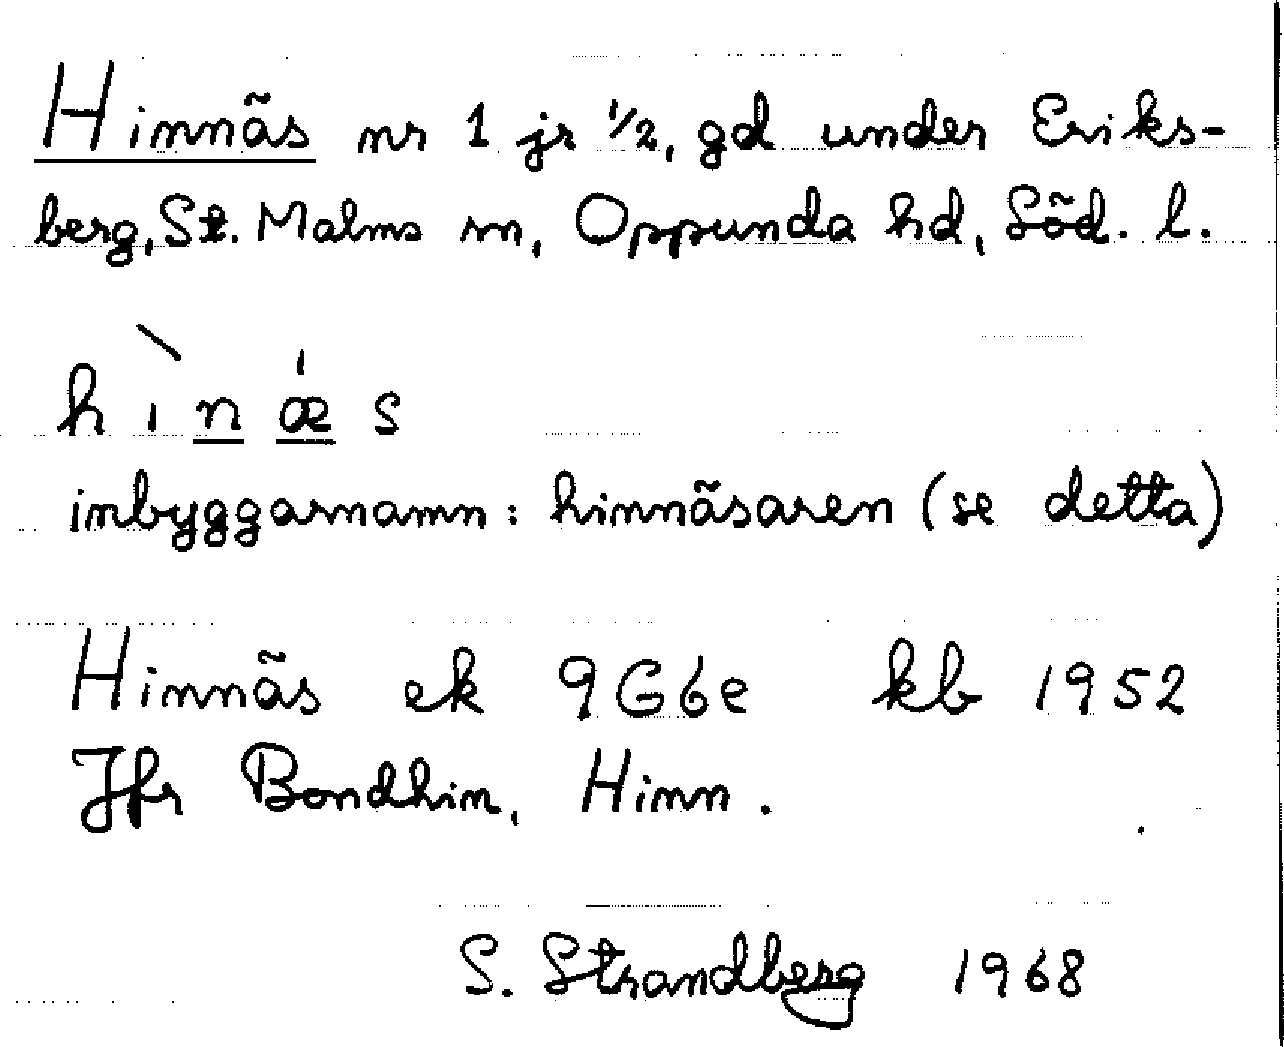 Hinnäs nr 1 jr 1/2, gd under Eriks-
berg, St. Malms sn, Oppunda hd, Söd. l.
hìnǽs
inbyggarnamn: hinnäsaren (se detta)
Hinnäs ek 9G6e kb 1952
Jfr Bondhin, Hinn.
S. Strandberg 1968